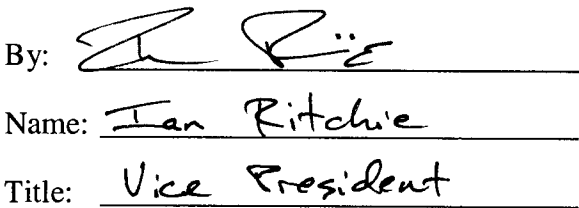 By:
Name: Ian Ritchie
Title: Vice President